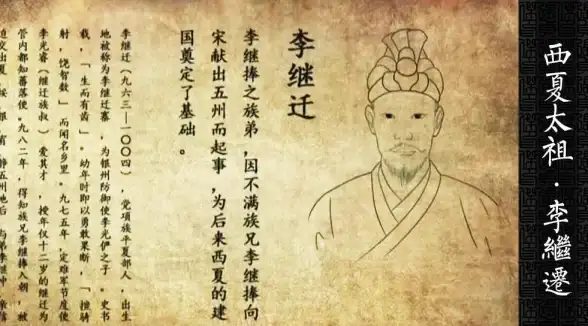 西夏太祖·李繼遷
李继迁
李继捧之族弟,因不满族兄李继捧向
宋献出五州而起事,为后来西夏的建
国奠定了基础。
李继迁(九六三—一〇〇四),党项族平夏部人,出生
地被称为李继迁寨,为银州防御使李光俨之子。史书
载,“生而有齿”。幼年时即以勇敢果断,“擅骑
射,饶智数”而闻名乡里。九七五年,定难军节度使
李光睿(继迁族叔)爱其才,授年仅十二岁的继迁为
管内都知蕃落使。九八二年,得知族兄李继捧入朝,被